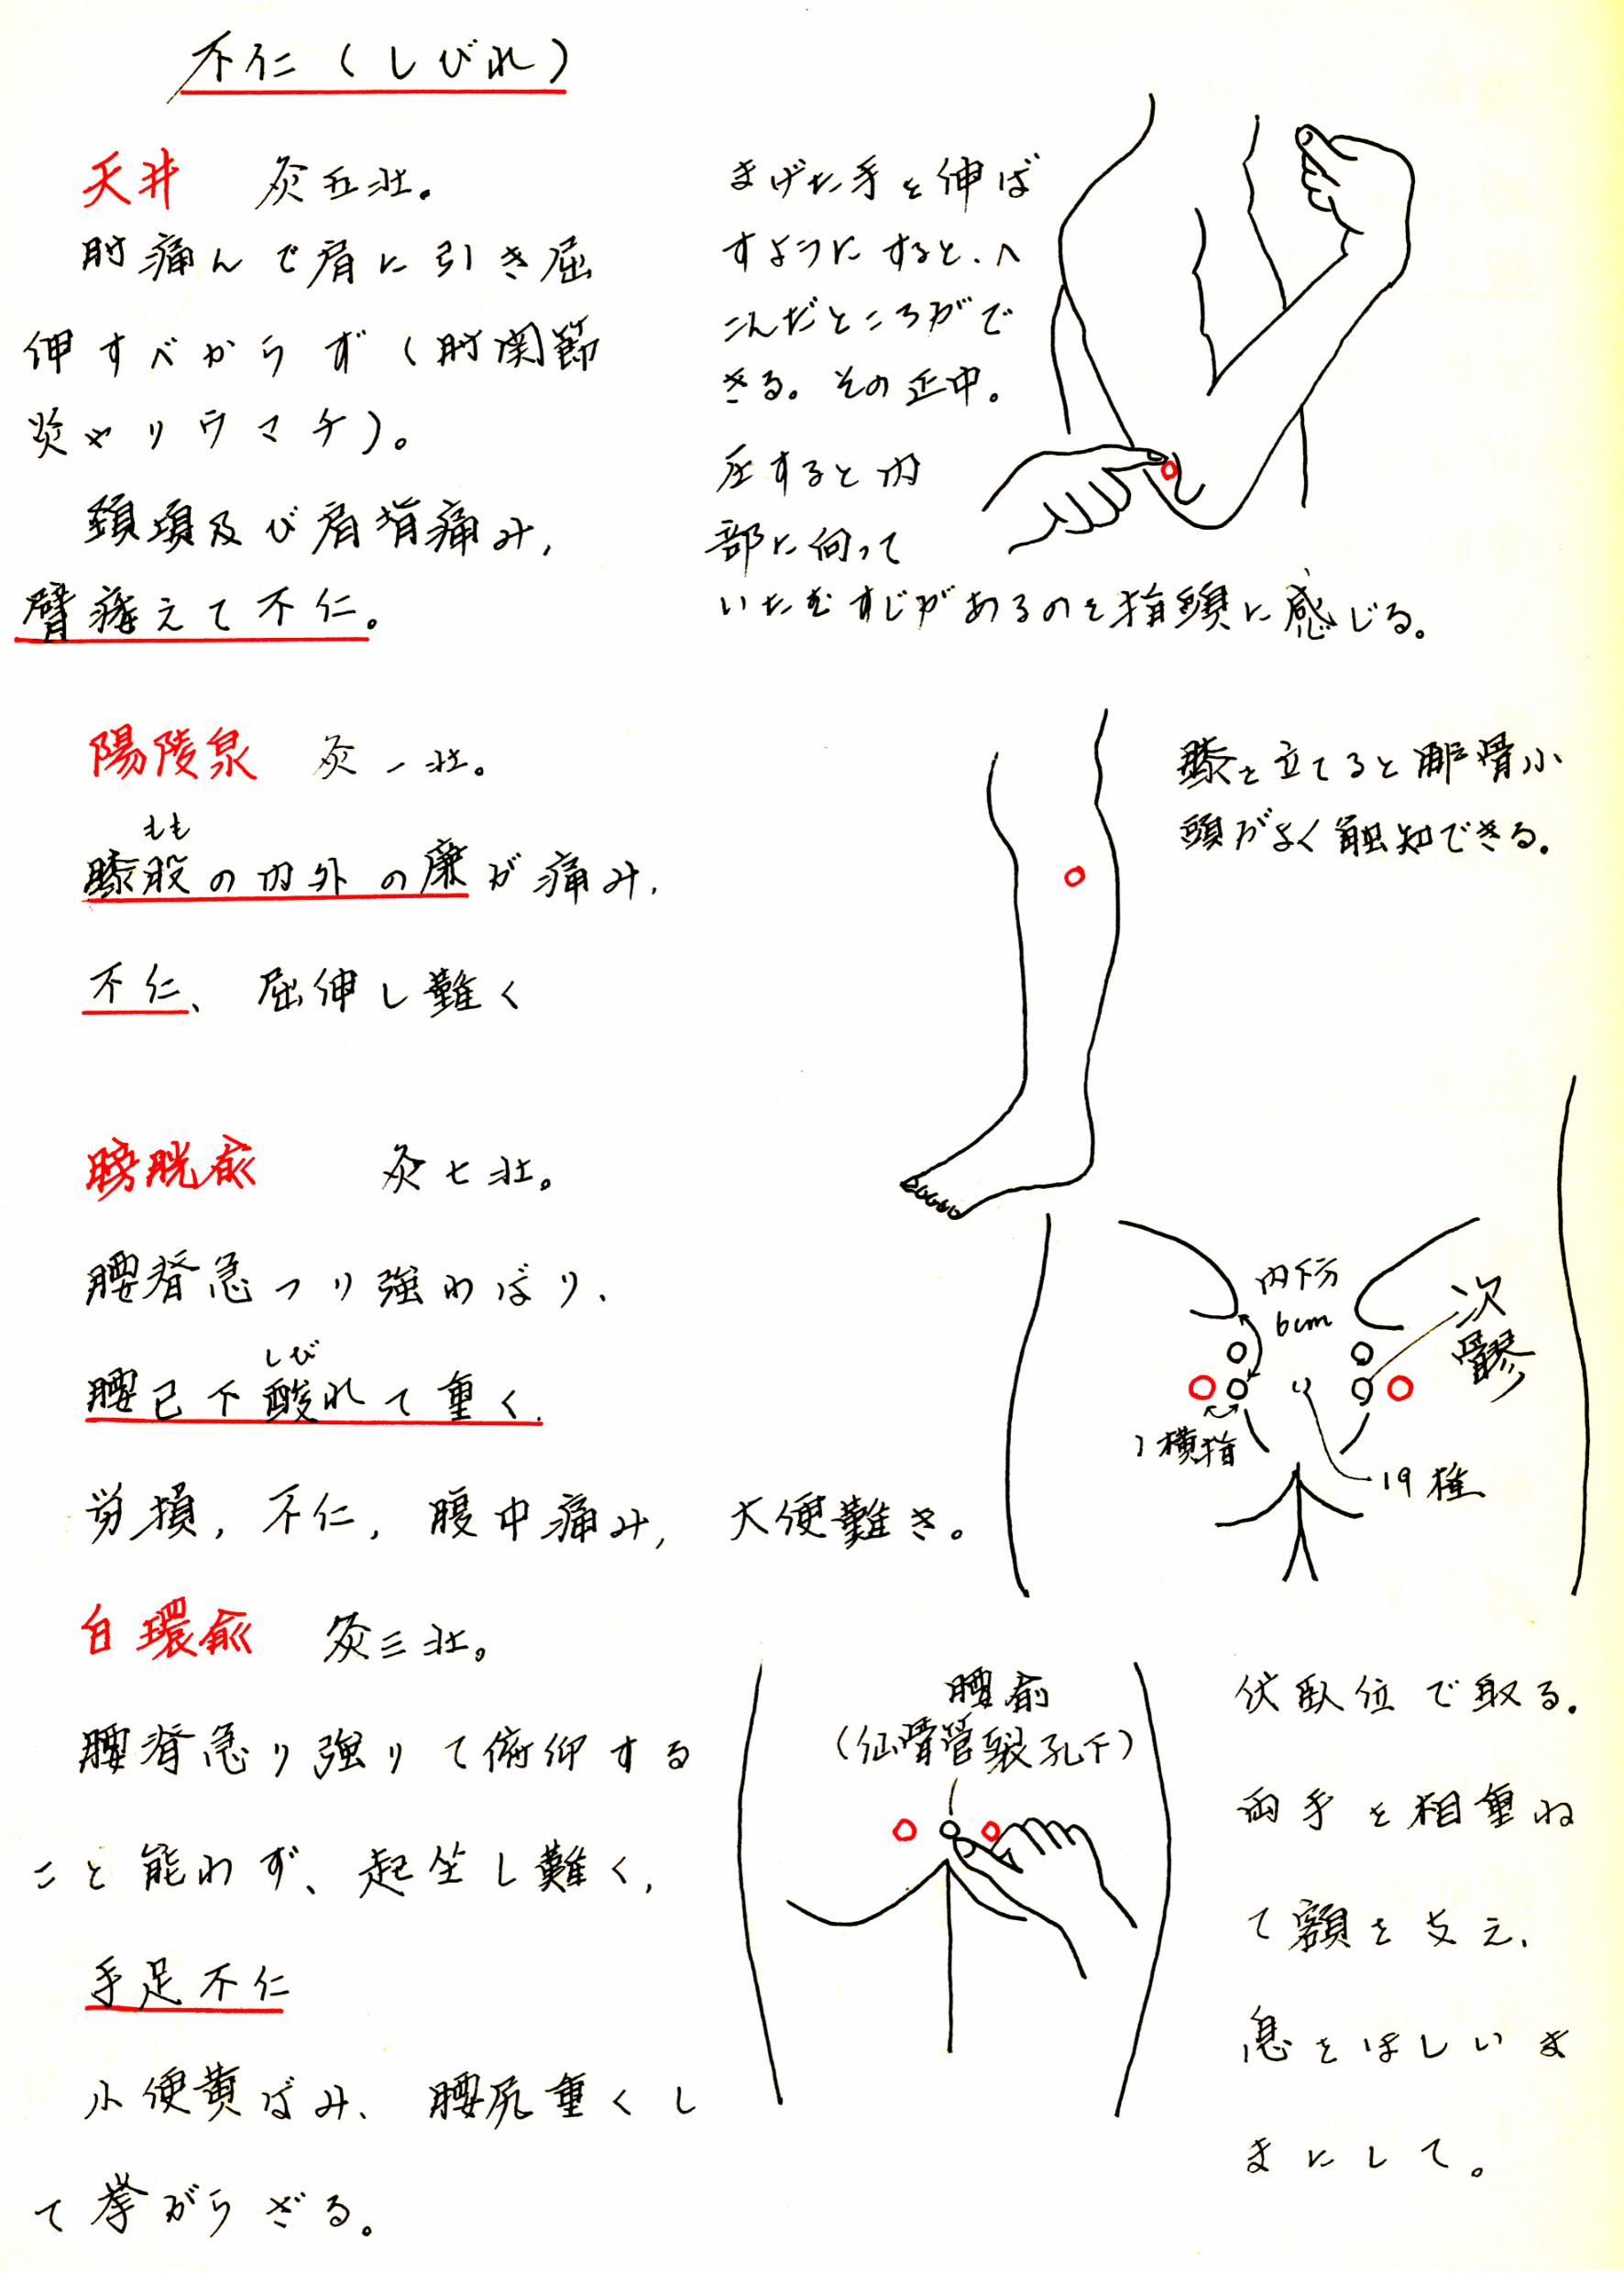 不仁(しびれ)
天井 灸五壮。
肘痛んで肩に引き屈
伸すべからず(肘関節
炎やリウマチ)。
頚項及び肩背痛み,
臂痿えて不仁。
まげた手を伸ば
すようにすると、へ
こんだところがで
きる。その正中。
圧すると内
部に向って
いたむすじがあるのを指頭に感じる。
陽陵泉 灸一壮。
もも
膝股の内外の廉が痛み,
不仁、屈伸し難く
膝を立てると腓骨小
頭がよく触知できる。
膀胱兪 灸七壮。
腰脊急つり強わばり、
しび
腰已下酸れて重く、
労損, 不仁, 腹中痛み, 大便難き。
内下方
6cm
次
髎
1横指
19椎
白環兪 灸三壮。
腰脊急り強りて俯仰する
こと能わず、起坐し難く,
手足不仁
小便黄ばみ、腰尻重くし
て挙がらざる。
腰兪
(仙骨管裂孔下)
伏臥位で取る。
両手を相重ね
て額を支え、
息をほしいま
まにして。